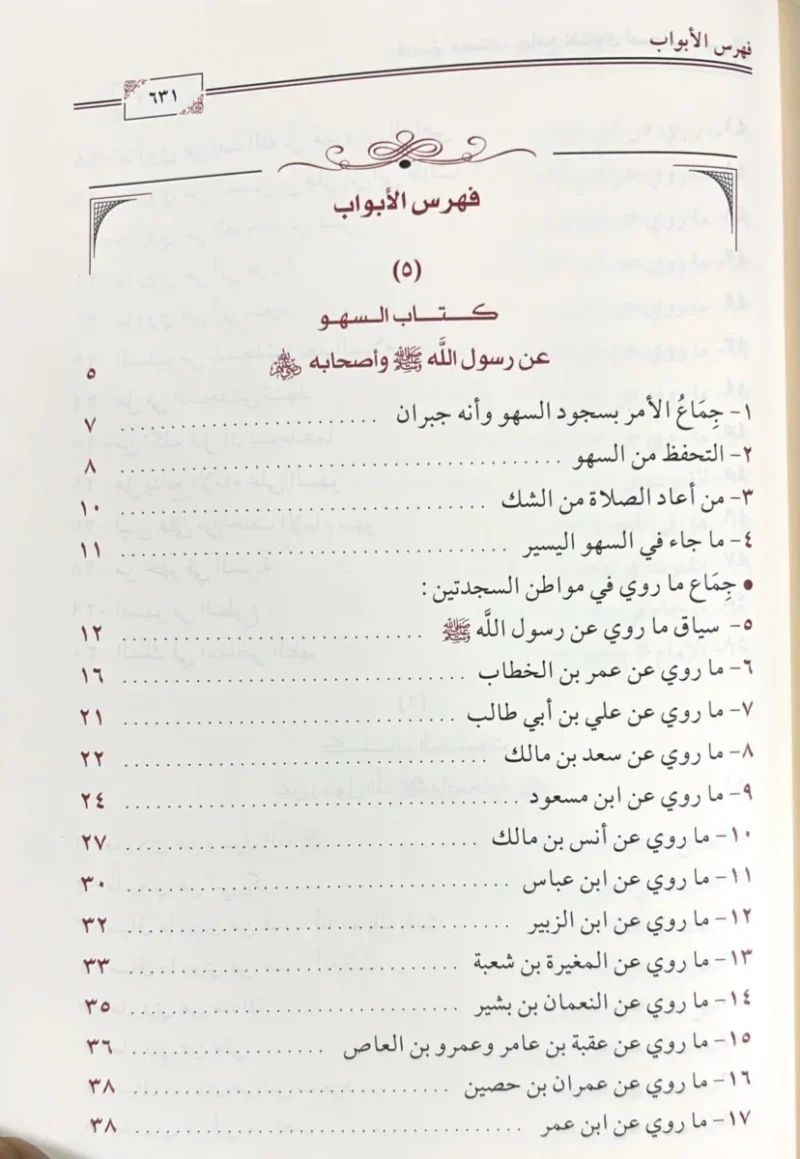 فهرس الأبواب
٦٣١
فهرس الأبواب
(٥)
كتاب السهو
عن رسول اللَّه ﷺ وأصحابه ٥
١- جِمَاعُ الأمر بسجود السهو وأنه جبران ٧
٢- التحفظ من السهو ٨
٣- من أعاد الصلاة من الشك ١٠
٤- ما جاء في السهو اليسير ١١
• جِمَاع ما روي في مواطن السجدتين:
٥- سياق ما روي عن رسول اللَّه ﷺ ١٢
٦- ما روي عن عمر بن الخطاب ١٦
٧- ما روي عن علي بن أبي طالب ٢١
٨- ما روي عن سعد بن مالك ٢٢
٩- ما روي عن ابن مسعود ٢٤
١٠- ما روي عن أنس بن مالك ٢٧
١١- ما روي عن ابن عباس ٣٠
١٢- ما روي عن ابن الزبير ٣٢
١٣- ما روي عن المغيرة بن شعبة ٣٣
١٤- ما روي عن النعمان بن بشير ٣٥
١٥- ما روي عن عقبة بن عامر وعمرو بن العاص ٣٦
١٦- ما روي عن عمران بن حصين ٣٨
١٧- ما روي عن ابن عمر ٣٨